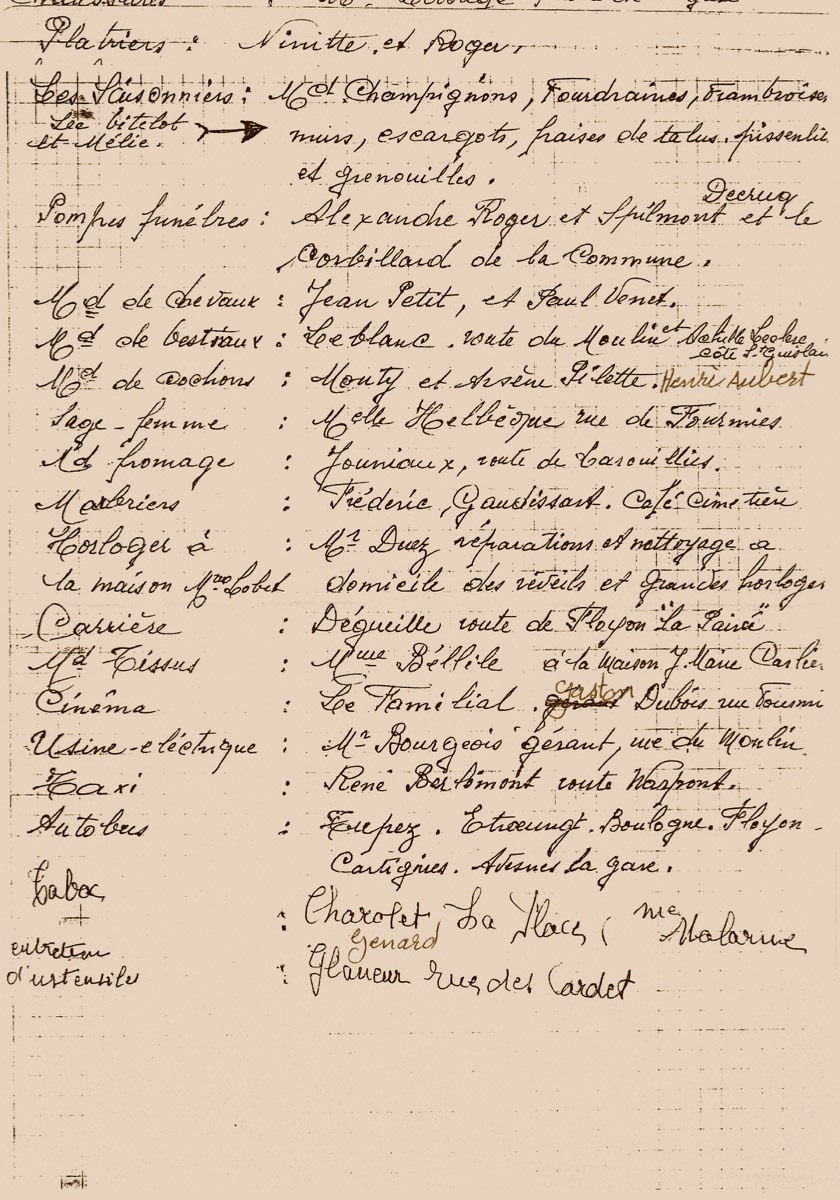 Platriers : Ninitte et Roger.
Les Saisonniers : Md Champignons, Fourdraines, frambroises
Lée bitelot
et Mélie. murs, escargots, fraises de talus. pissenlit
et grenouilles.
Decrug
Pompes funébres : Alexandre Roger et Spilmont et le
Corbillard de la Commune.
Md de chevaux : Jean Petit, et Paul Venet.
Md de bestiaux : Leblanc. route du Moulin et Achille Leclerc
côte St Guislain
Md de cochons : Mouty et Arsène Pilette. Henri Aubert
Sage-femme : Melle Helbèque rue de Fourmies
Md fromage : Jouniaux, route de Carouillies.
Marbriers : Fréderic, Gaudissart. Café Cimetière
Horloger à : Mr Duez réparations et nettoyage a
la maison Mme Lobet domicile des réveils et grandes horloges
Carrière : Dégueille route de Floyon "La Pairée"
Md Tissus : Mme Béllile à la Maison J. Marie Carlier
Gaston
Cinéma : Le Familial. gérant Dubois rue Fourmi
Usine-eléctrique : Mr Bourgeois gérant, rue du Moulin
Taxi : René Berlémont route Warpont.
Autobus : Trepez. Etroeungt. Boulogne. Floyon -
Cartignies. Avesnes la gare.
Tabac : Charolet, La Place, ( me Malarme
Genard
entretien
d'ustensiles : Glaneur rue des Cardet